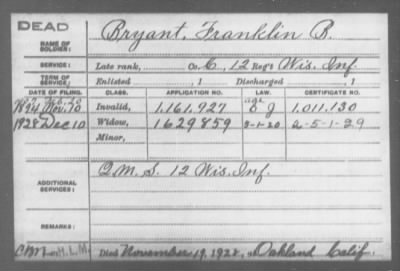 DEAD
NAME OF SOLDIER: Bryant, Franklin B.
SERVICE: Late rank, Co. C, 12 Reg't Wis. Inf.
TERM OF SERVICE: Enlisted , 1 Discharged , 1
DATE OF FILING. CLASS. APPLICATION NO. LAW. CERTIFICATE NO.
1894 Nov. 10 Invalid, 1,161,927 1,011,130
1928 Dec 10 Widow, 1629859 5-1-20 2-5-1-29
Minor,
ADDITIONAL SERVICES: Q.M.S. 12 Wis. Inf.
REMARKS:
H.L.M. Died November 19, 1928, at Oakland Calif.